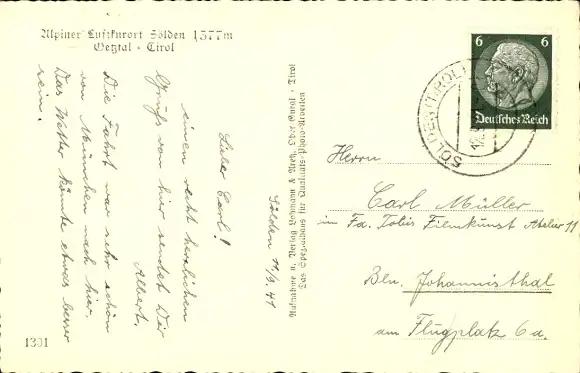 Alpiner Luftkurort Sölden 1377m
Oetztal · Tirol
Sölden 11/9.41
Lieber Carl!
einen recht herzlichen
Gruß von hier sendet Dir
Albert.
Die Fahrt war sehr schön
von München nach hier.
Das Wetter könnte etwas besser
sein.
1301
Aufnahme u. Verlag Lohmann & Aretz, Ober Gurgl · Tirol
Das Spezialhaus für Qualitäts-Photo-Arbeiten
6 6
Deutsches Reich
SÖLDEN (TIROL)
Herrn
Carl Müller
im Fa. Tobis Filmkunst Atelier 11
Bln. Johannisthal
am Flugplatz 6a.